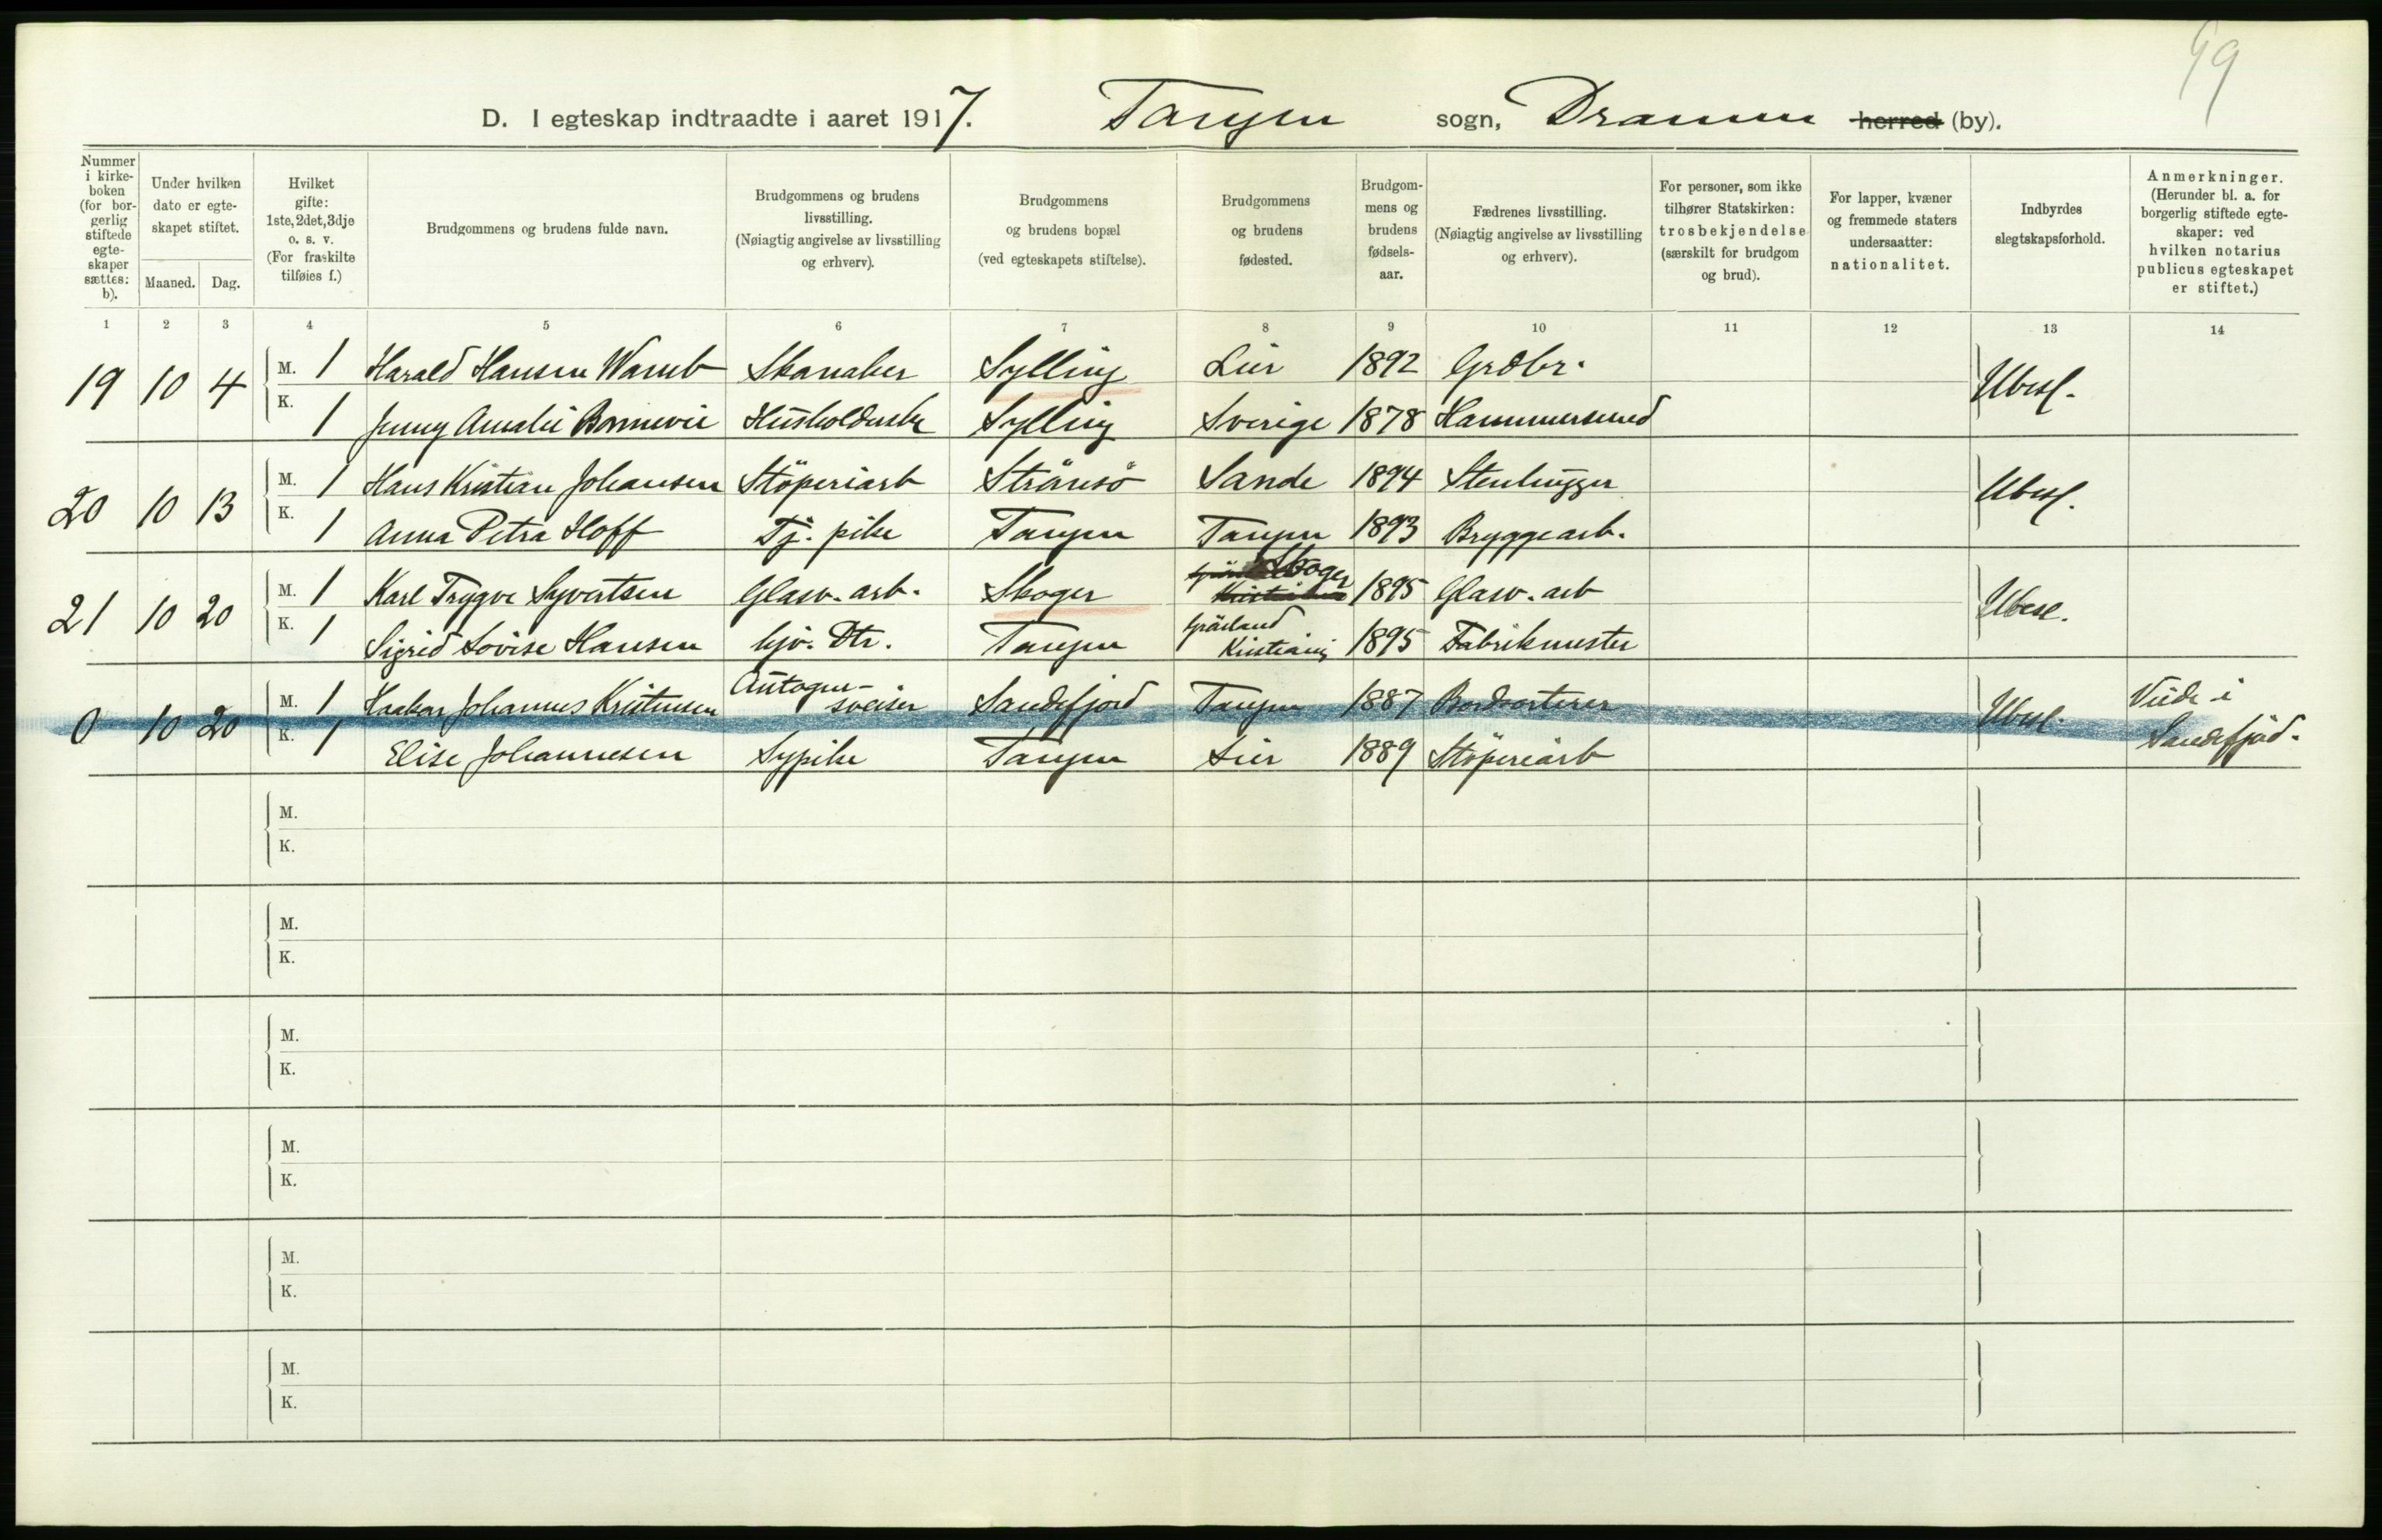 99
D. I egteskap indtraadte i aaret 1917. Tangen sogn, Drammen herred (by).
Nummer i kirkeboken (for borgerlig stiftede egteskaper sættes: b).
Under hvilken dato er egteskapet stiftet.
Maaned. Dag.
Hvilket gifte: 1ste, 2det, 3dje o. s. v. (For fraskilte tilføies f.)
Brudgommens og brudens fulde navn.
Brudgommens og brudens livsstilling. (Nøiagtig angivelse av livsstilling og erhverv).
Brudgommens og brudens bopæl (ved egteskapets stiftelse).
Brudgommens og brudens fødested.
Brudgommens og brudens fødselsaar.
Fædrenes livsstilling. (Nøiagtig angivelse av livsstilling og erhverv).
For personer, som ikke tilhører Statskirken: trosbekjendelse (særskilt for brudgom og brud).
For lapper, kvæner og fremmede staters undersaatter: nationalitet.
Indbyrdes slegtskapsforhold.
Anmerkninger. (Herunder bl. a. for borgerlig stiftede egteskaper: ved hvilken notarius publicus egteskapet er stiftet.)
1 2 3 4 5 6 7 8 9 10 11 12 13 14
19 10 4 M. 1 Harald Hansen Sylling Lier 1892 Grdbr. Ubesl.
K. 1 Jenny Amalie Bonnevie Husholderske Sylling Sverige 1878 Hammersmed
20 10 13 M. 1 Hans Kristian Johansen Støperiarb Strømsø Sande 1894 Stenhugger Ubesl.
K. 1 Anna Petra Hoff Tj. pike Tangen Tangen 1893 Bryggearb.
21 10 20 M. 1 Karl Trygve Syvertsen Glasv. arb. Skoger Skoger 1895 Glasv. arb Ubesl.
K. 1 Sigrid Lovise Hansen hjv. Dtr. Tangen Grønland Kristiania 1895 Fabrikmester
0 10 20 M. 1 Haakon Johannes Kristensen Autogensveiser Sandefjord Tangen 1887 Bordsorterer Ubesl. Viede i Sandefjord.
K. 1 Elise Johannesen Sypike Tangen Lier 1889 Støperiarb
M.
K.
M.
K.
M.
K.
M.
K.
M.
K.
M.
K.